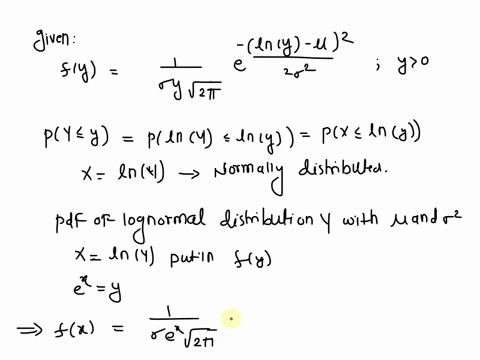 given:
f(y) = 1/(σy√2π) e^(-(ln(y)-μ)²/2σ²) ; y>0
P(Y≤y) = P(ln(Y) ≤ ln(y)) = P(X ≤ ln(y))
X = ln(Y) → Normally distributed.
pdf of lognormal distribution Y with μ and σ²
X = ln(Y) put in f(y)
e^x = y
⇒ f(x) = 1/(σe^x√2π)